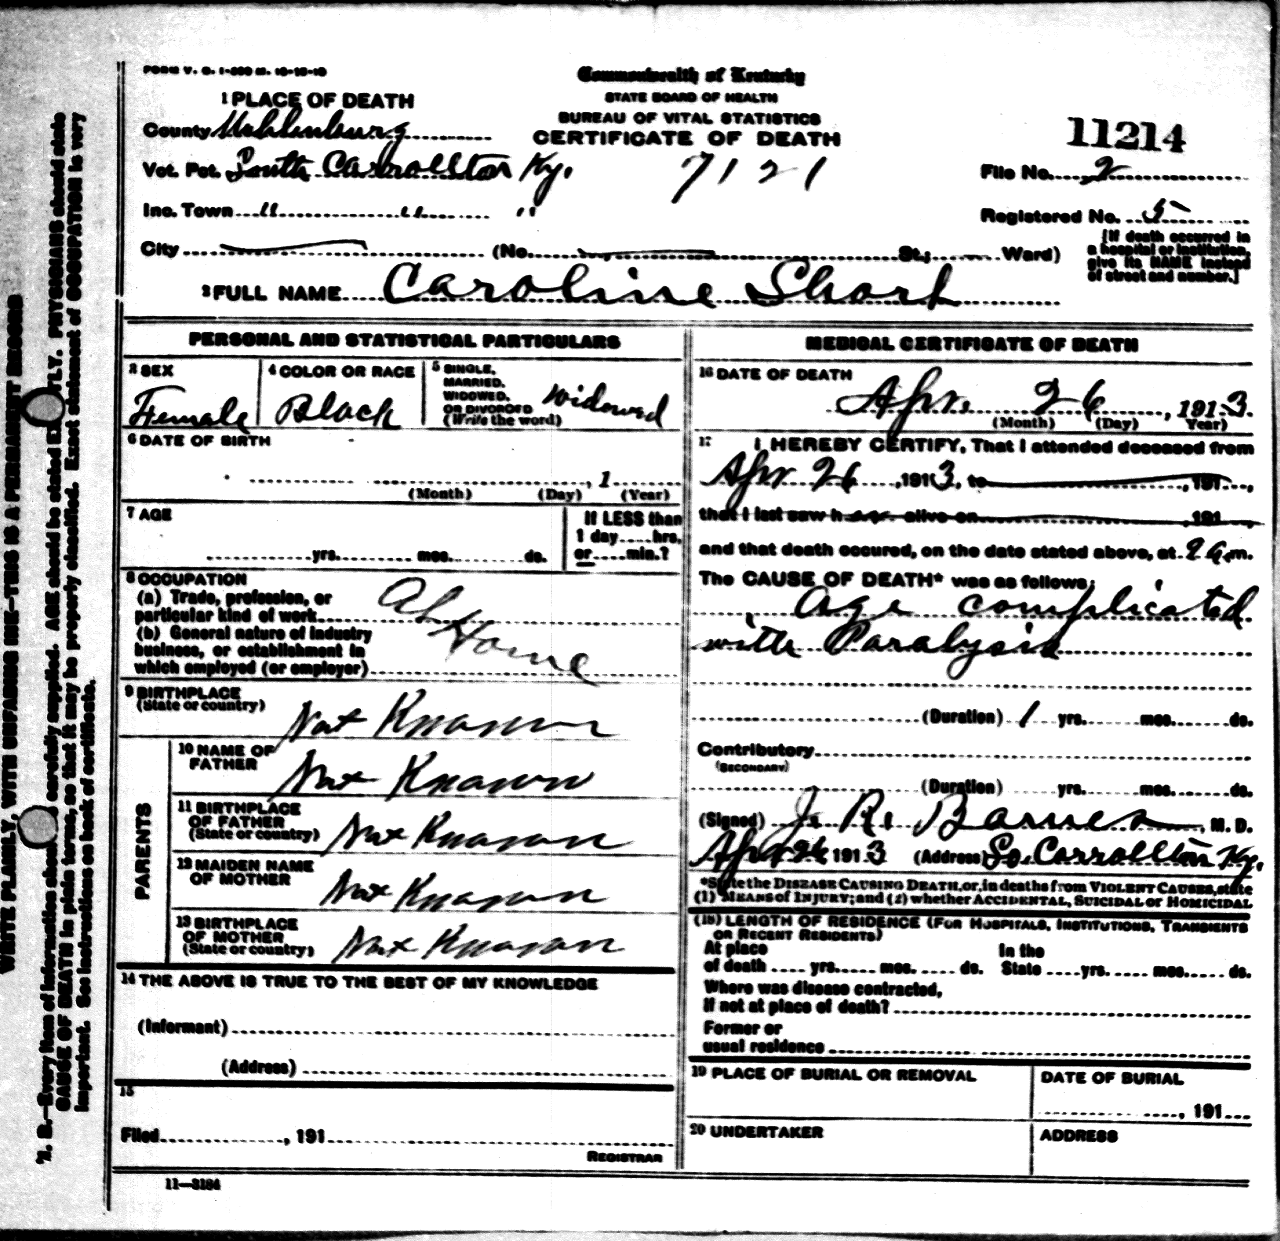 FORM V. S. 1-500 M. 12-15-10
Commonwealth of Kentucky
STATE BOARD OF HEALTH
BUREAU OF VITAL STATISTICS
CERTIFICATE OF DEATH
11214
1 PLACE OF DEATH
County Muhlenburg
Vot. Pct. South Carrollton Ky. 7121
File No. 2
Inc. Town " " "
Registered No. 5
City (No. St.; Ward)
[If death occurred in
a hospital or institution,
give its NAME instead
of street and number.]
2 FULL NAME Caroline Short
PERSONAL AND STATISTICAL PARTICULARS
3 SEX
Female
4 COLOR OR RACE
Black
5 SINGLE,
MARRIED,
WIDOWED,
OR DIVORCED
(Write the word)
Widowed
6 DATE OF BIRTH
, 1
(Month) (Day) (Year)
7 AGE
yrs. mos. ds.
If LESS than
1 day....hrs.
or....min.?
8 OCCUPATION
(a) Trade, profession, or
particular kind of work
(b) General nature of industry
business, or establishment in
which employed (or employer)
At Home
9 BIRTHPLACE
(State or country)
Not Known
PARENTS
10 NAME OF
FATHER
Not Known
11 BIRTHPLACE
OF FATHER
(State or country)
Not Known
12 MAIDEN NAME
OF MOTHER
Not Known
13 BIRTHPLACE
OF MOTHER
(State or country)
Not Known
14 THE ABOVE IS TRUE TO THE BEST OF MY KNOWLEDGE
(Informant)
(Address)
15
Filed , 191
REGISTRAR
11—3184
MEDICAL CERTIFICATE OF DEATH
16 DATE OF DEATH
Apr. 26, 1913
(Month) (Day) Year)
17 I HEREBY CERTIFY, That I attended deceased from
Apr 26, 1913, to , 191 ,
that I last saw her alive on , 191
and that death occured, on the date stated above, at 9 a.m.
The CAUSE OF DEATH* was as follows:
Age complicated
with Paralysis
(Duration) 1 yrs. mos. ds.
Contributory
(SECONDARY)
(Duration) yrs. mos. ds.
(Signed) J. R. Barnes, M. D.
Apr 26 1913 (Address) So. Carrollton Ky.
*State the DISEASE CAUSING DEATH, or, in deaths from VIOLENT CAUSES, state
(1) MEANS of INJURY; and (2) whether ACCIDENTAL, SUICIDAL or HOMICIDAL
(18) LENGTH OF RESIDENCE (FOR HOSPITALS, INSTITUTIONS, TRANSIENTS
OR RECENT RESIDENTS)
At place In the
of death yrs. mos. ds. State yrs. mos. ds.
Where was disease contracted,
If not at place of death?
Former or
usual residence
19 PLACE OF BURIAL OR REMOVAL
DATE OF BURIAL
, 191
20 UNDERTAKER
ADDRESS
WRITE PLAINLY, WITH UNFADING INK—THIS IS A PERMANENT RECORD
N. B.—Every item of information should be carefully supplied. AGE should be stated EXACTLY. PHYSICIANS should state
CAUSE OF DEATH in plain terms, so that it may be properly classified. Exact statement of OCCUPATION is very
important. See instructions on back of certificate.